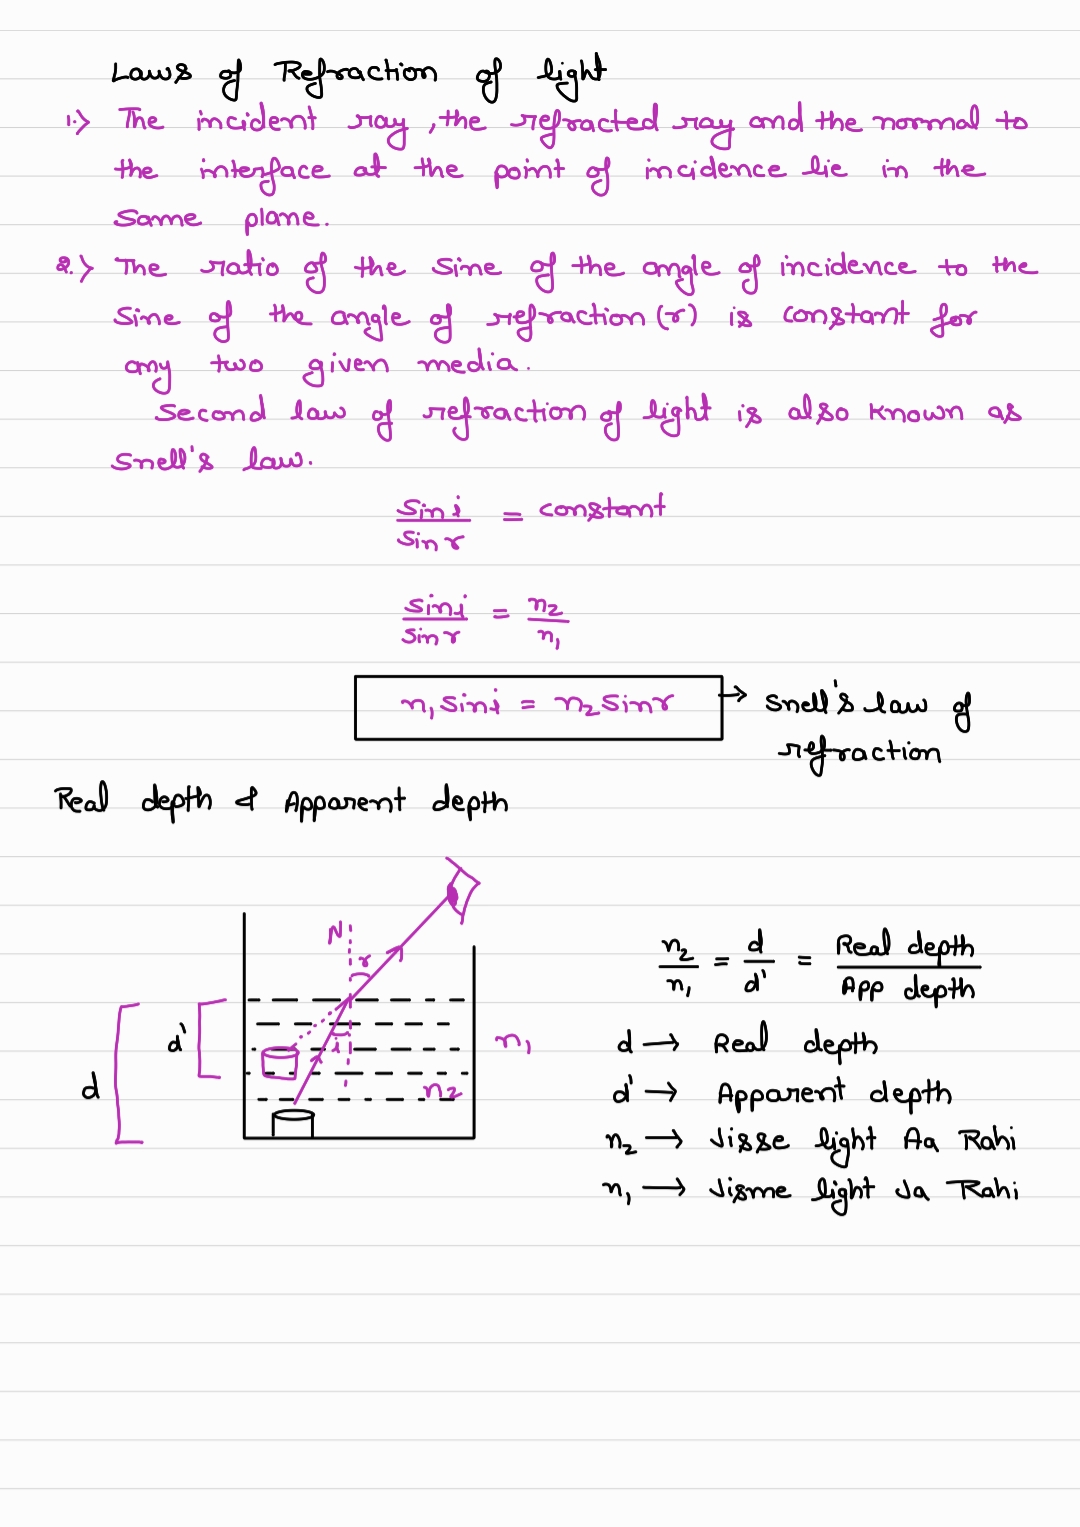 Laws of Refraction of light
1.> The incident ray, the refracted ray and the normal to
the interface at the point of incidence lie in the
same plane.
2.> The ratio of the sine of the angle of incidence to the
sine of the angle of refraction (r) is constant for
any two given media.
Second law of refraction of light is also known as
Snell's law.
sin i / sin r = constant
sin i / sin r = n₂ / n₁
n₁ sin i = n₂ sin r → Snell's law of
refraction
Real depth & Apparent depth
N
r
i
d'
d
n₁
n₂
n₂ / n₁ = d / d' = Real depth / App depth
d → Real depth
d' → Apparent depth
n₂ → Jisse light Aa Rahi
n₁ → Jisme light Ja Rahi